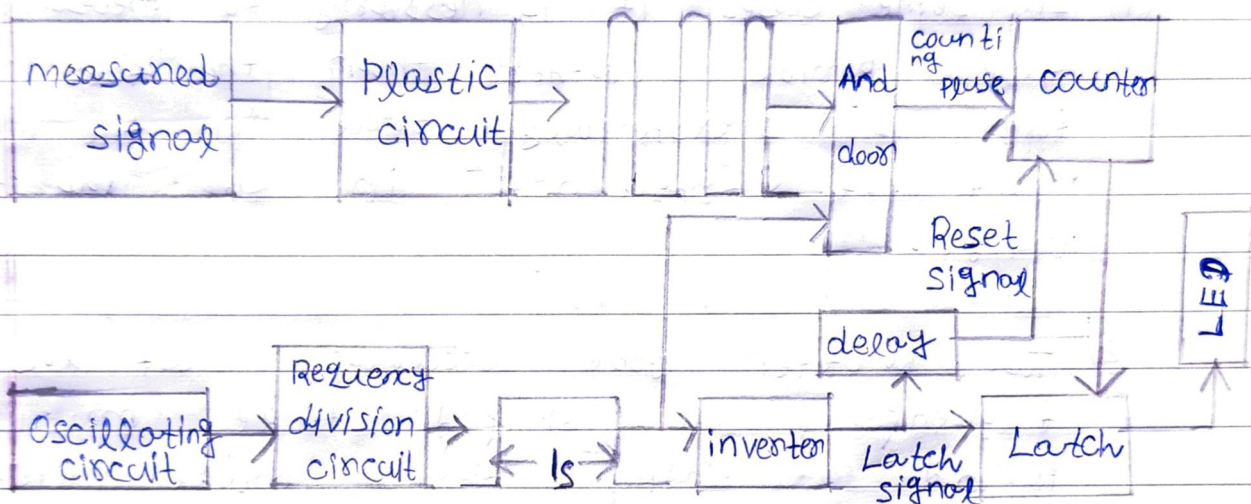 measured
signal
Plastic
circuit
And
door
counti
ng
pluse
counter
Reset
signal
LED
delay
Oscillating
circuit
Requency
division
circuit
1s
inverter
Latch
signal
Latch